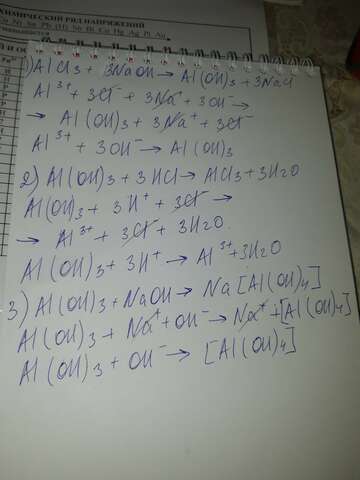 ХИМИЧЕСКИЙ РЯД НАПРЯЖЕНИЙ
Sn Pb (H) Sb Bi Cu Hg Ag Pt Au
1) AlCl3 + 3NaOH → Al(OH)3 + 3NaCl
Al³⁺ + 3Cl⁻ + 3Na⁺ + 3OH⁻ →
→ Al(OH)3 + 3Na⁺ + 3Cl⁻
Al³⁺ + 3OH⁻ → Al(OH)3
2) Al(OH)3 + 3HCl → AlCl3 + 3H2O
Al(OH)3 + 3H⁺ + 3Cl⁻ →
→ Al³⁺ + 3Cl⁻ + 3H2O.
Al(OH)3 + 3H⁺ → Al³⁺ + 3H2O
3) Al(OH)3 + NaOH → Na[Al(OH)4]
Al(OH)3 + Na⁺ + OH⁻ → Na⁺ + [Al(OH)4]
Al(OH)3 + OH⁻ → [Al(OH)4]